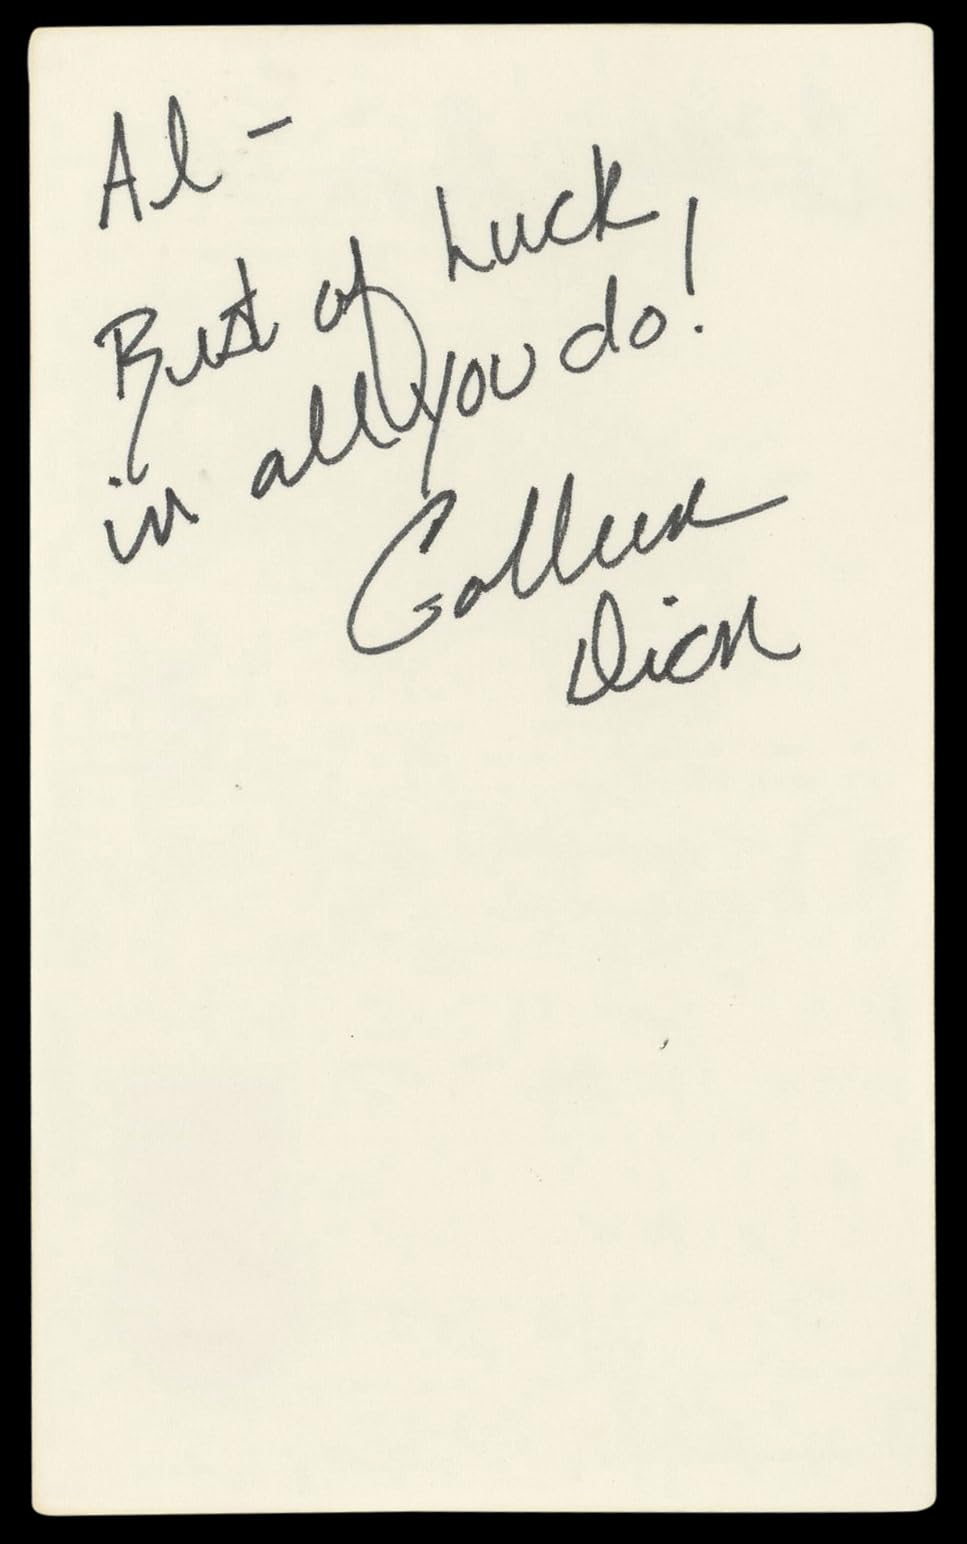 Al -
Best of Luck
in all you do!
Colleen
Dion